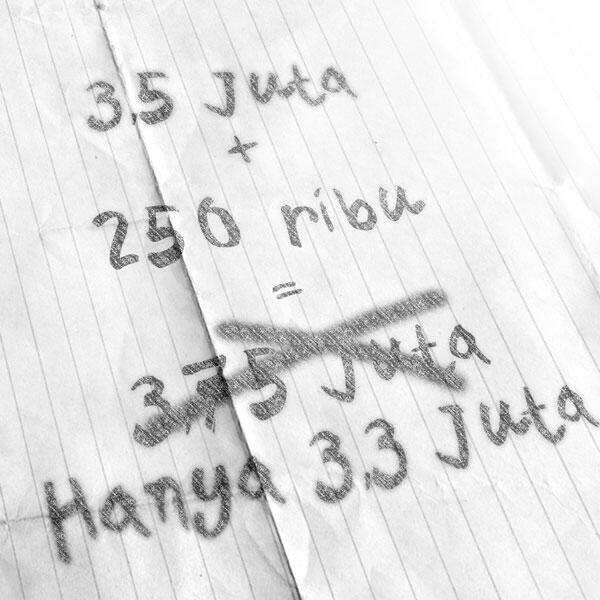 3,5 Juta
+
250 ribu
=
3,75 Juta
Hanya 3,3 Juta